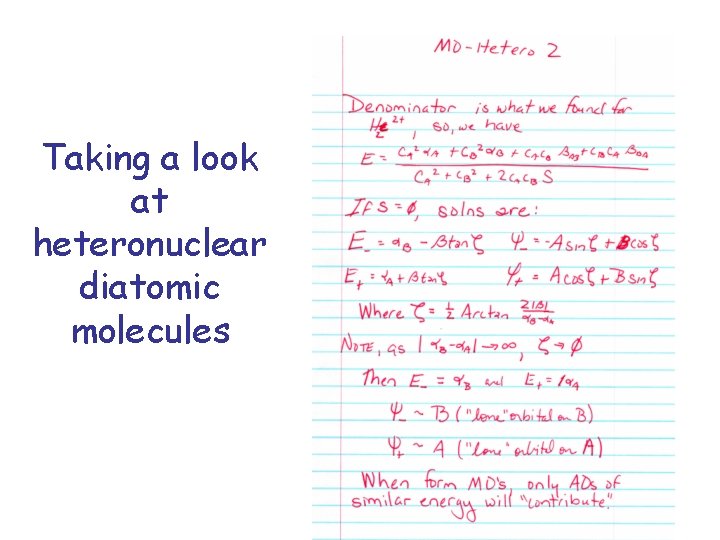 Taking a look
at
heteronuclear
diatomic
molecules
MO-Hetero 2
Denominator is what we found for
H₂²⁺, so, we have
E = (C_A²α_A + C_B²α_B + C_AC_B β_AB + C_BC_A β_BA) / (C_A² + C_B² + 2C_AC_B S)
If S = ∅, solns are:
E₋ = α_B - βtanζ   Ψ₋ = -A sinζ + B cosζ
E₊ = α_A + βtanζ   Ψ₊ = A cosζ + B sinζ
Where ζ = ½ Arctan 2|β| / (α_B - α_A)
NOTE, as |α_B - α_A| → ∞, ζ → ∅
Then E₋ = α_B and E₊ = α_A
Ψ₋ ~ B ("lone" orbital on B)
Ψ₊ ~ A ("lone" orbital on A)
When form MO's, only AOs of
similar energy will "contribute"